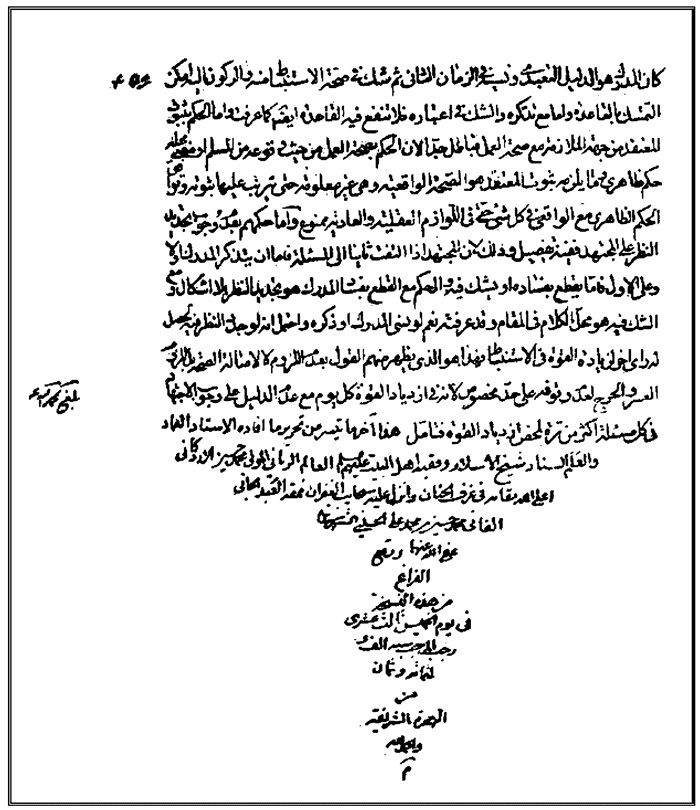 كان المدرك هو الدليل التعبدى ونسيه فى الزمان الثانى ثم شك فى صحة الاستنباط منه والركون اليه امكن
التمسك بالقاعدة واما مع تذكره والشك فى اعتباره فلا تنفع فيه القاعدة ايضا كما عرفت واما الحكم بثبوت
المعتقد من جهة الملازمة مع صحة العمل فباطل جدا لان الحكم بصحة العمل من حيث وقوعه من المسلم او مضى محله
حكم ظاهرى وما يلزمه ثبوت المعتقد هو الصحة الواقعية وهى غير معلومة حتى يترتب عليها ثبوته
الحكم الظاهرى مع الواقعى فى كل شىء حتى فى اللوازم العقلية والعادية ممنوع واما حكمهم بعدم وجوب تجديد
النظر على المجتهد ففيه تفصيل وذلك لان المجتهد اذا التفت ثانيا الى المسئلة فاما ان يتذكر المدرك او لا
وعلى الاول فاما يقطع بفساده او يشك فيه والحكم مع القطع بفساد المدرك هو تجديد النظر بلا اشكال ومع
الشك فيه هو محل الكلام فى المقام وقد عرفته نعم لو نسى المدرك او ذكره واحتمل انه لو جدد النظر يحصل
له راى اخر لزيادة القوة فى الاستنباط فهذا هو الذى يظهر منهم القول بعدم اللزوم لاصالة الصحة وللزوم
العسر والحرج لعدم توقفه على حد مخصوص لانه فى ازدياد القوة كل يوم مع عدم الدليل على وجوب الاجتهاد
فى كل مسئلة اكثر من مرة لمحض ازدياد القوة فتامل هذا آخر ما تيسر من تحرير ما افاده الاستاد العماد
والعلم السناد شيخ الاسلام وفقيه اهل البيت عليهم السلام العالم الربانى المولى محمد حسين الاردكانى
اعلى الله مقامه فى غرف الجنان وانزل عليه سحايب الغفران نمقه العبد الجانى
الفانى محمد حسين بن محمد على الحسينى
عفى الله عنهما وقع
الفراغ
من هذه النسخة
فى يوم الخميس الثالث عشر
رجب المرجب سنه الف و
ثلثمائه وثمان
من
الهجرة الشريفة
والحمد لله
م